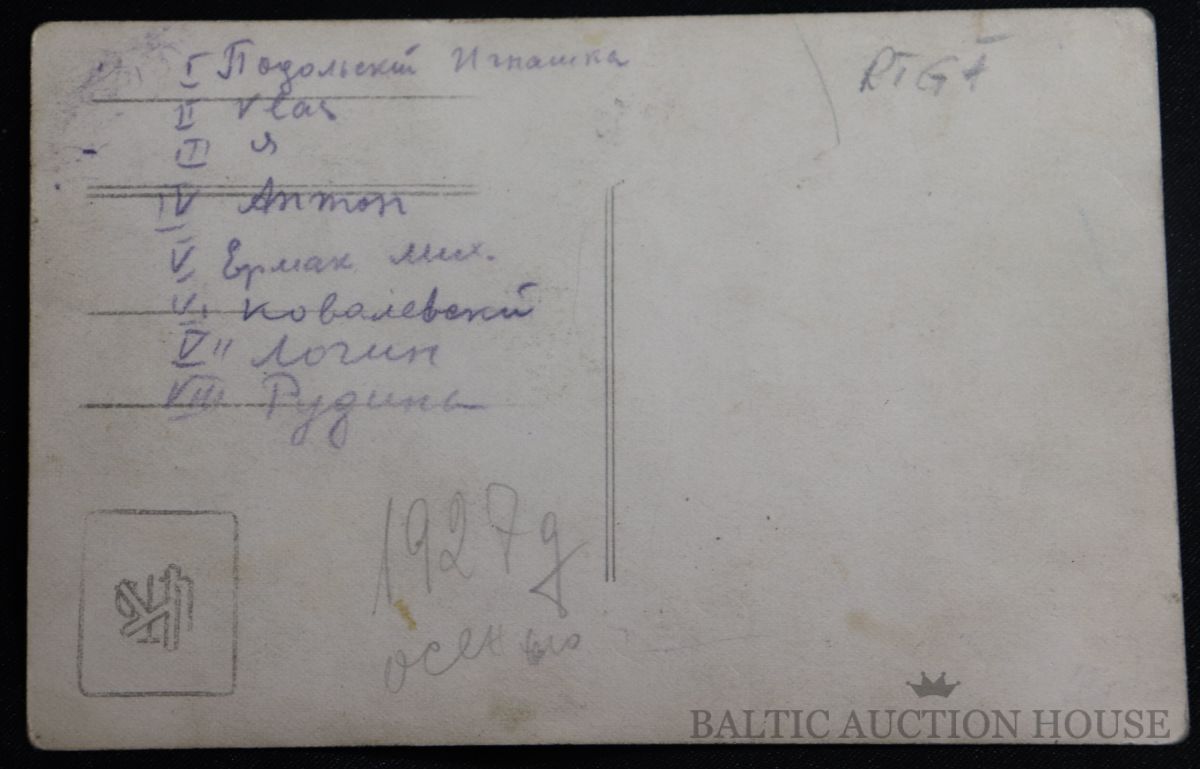 I Подольский Игнашка
II Vlas
III Я
IV Антон
V Ермак мих.
VI Ковалевский
VII Логин
VIII Рудина
1927 д
осенью
BALTIC AUCTION HOUSE